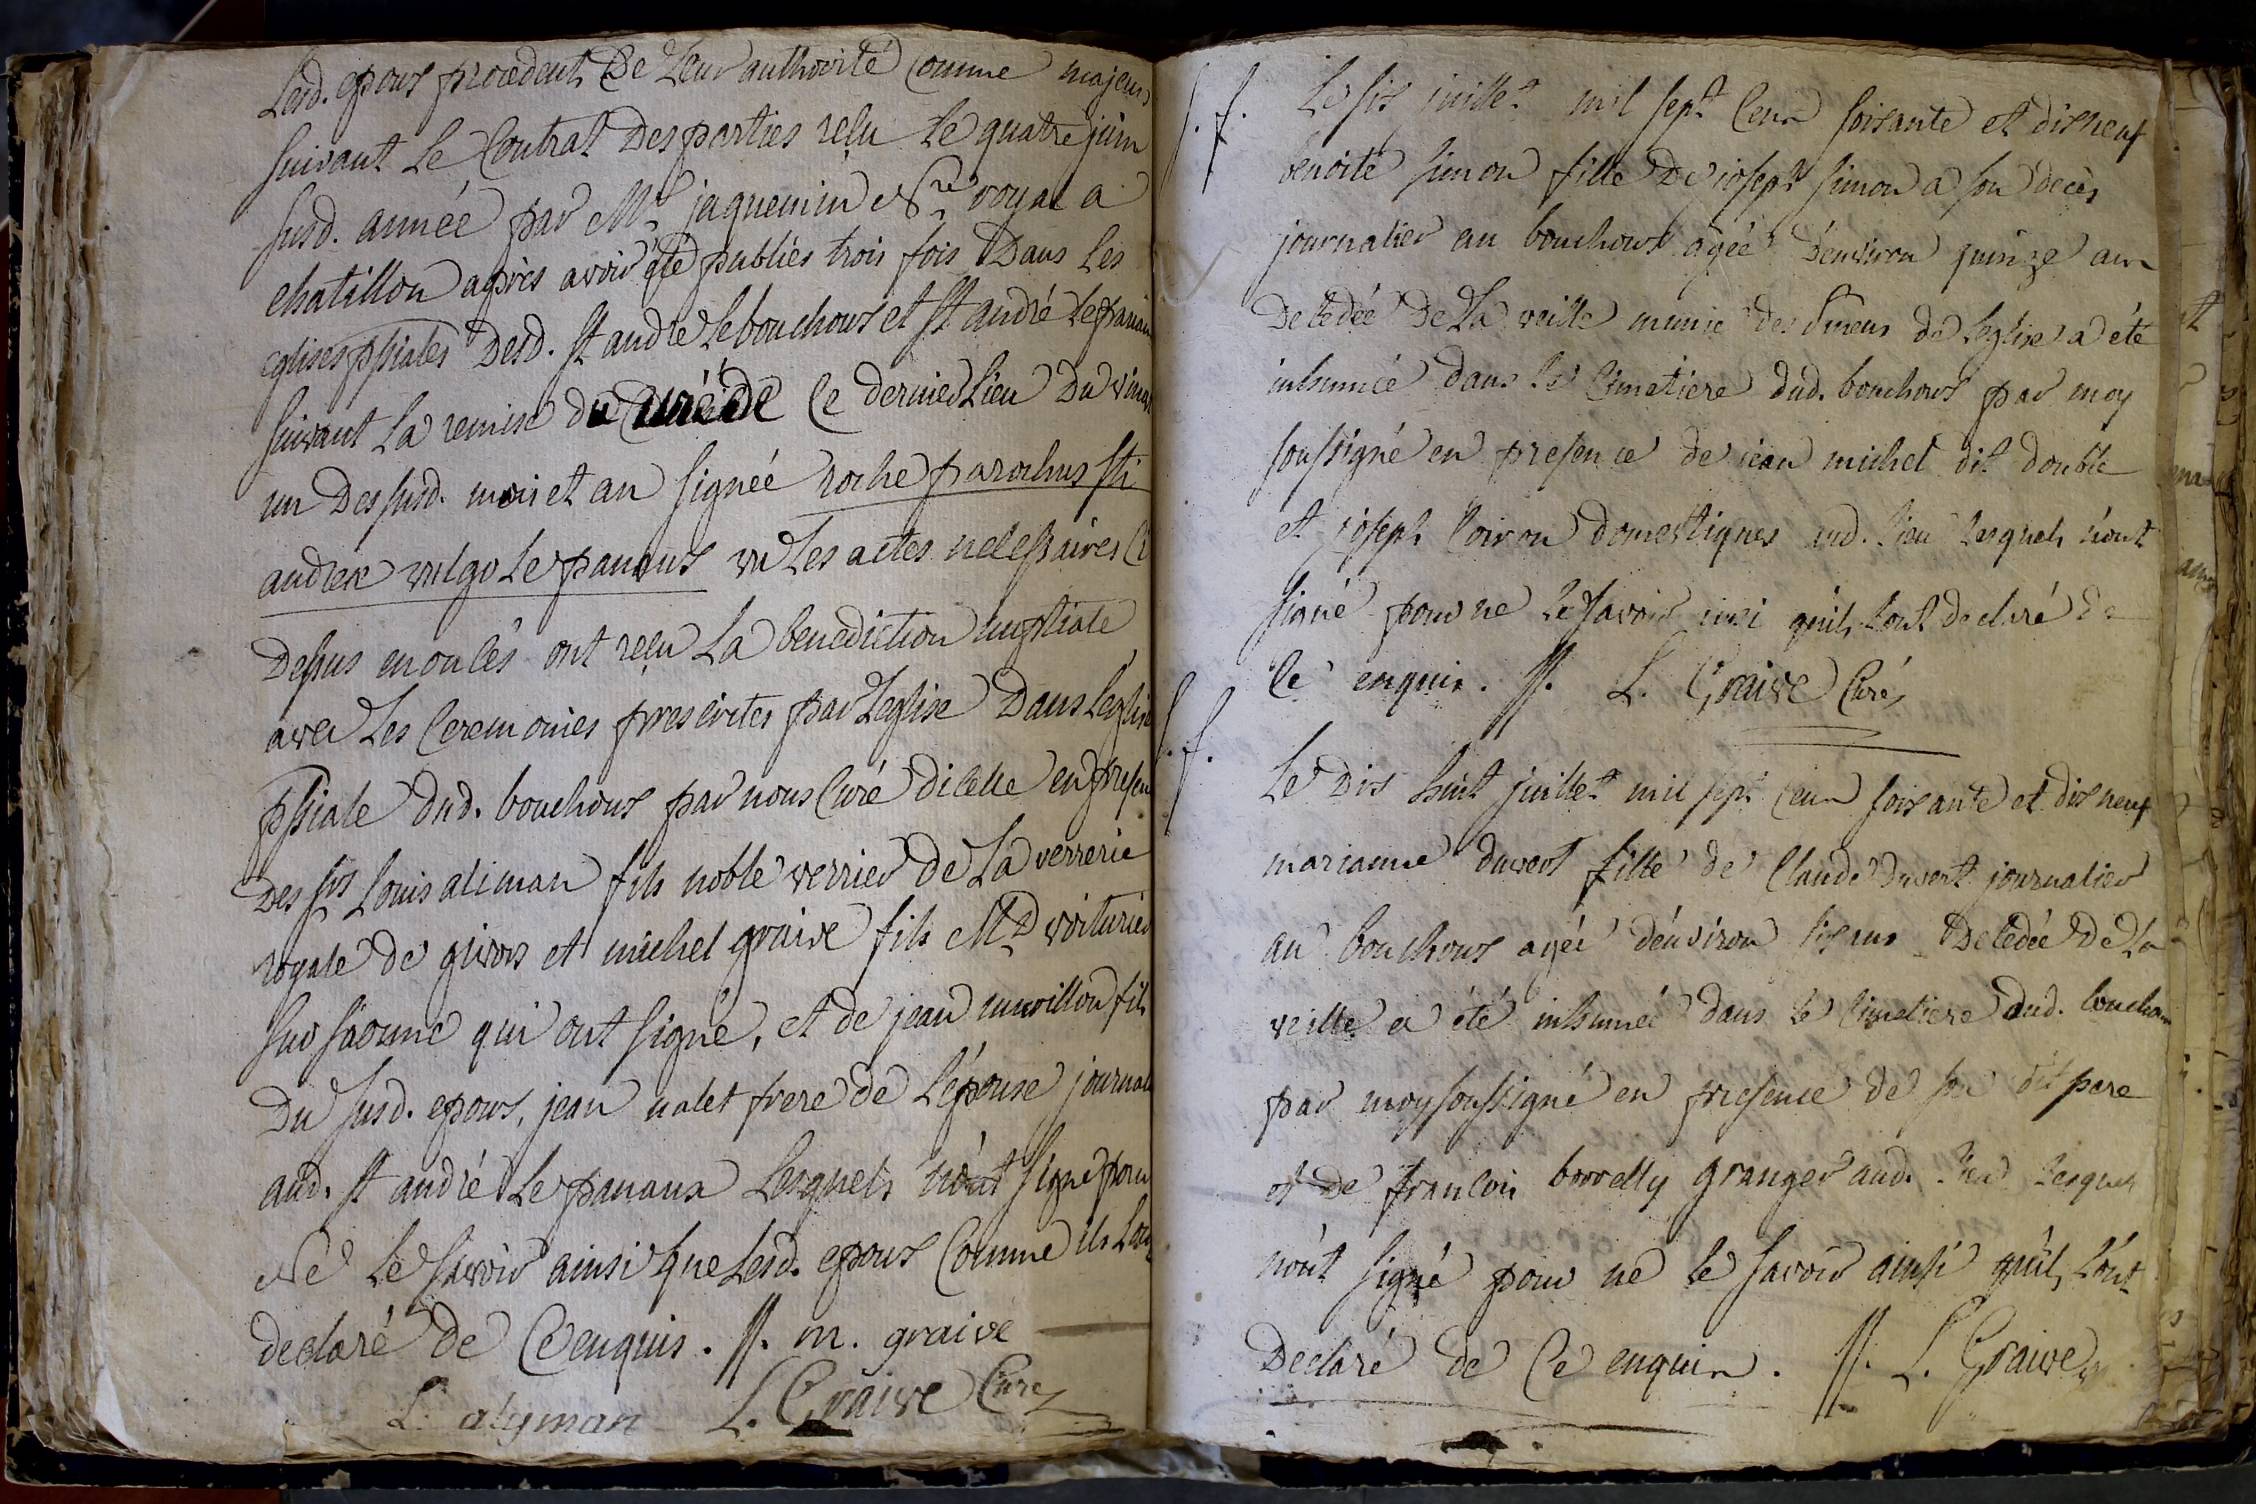 Lesd. epous procedent De Leur authorité Comme majeurs
suivant Le Contrat Des parties reçu Le quatre juin
susd. année par Me jaquemin Nre royal a
chatillon après avoir été publiés trois fois Dans Les
eglises pssiales Desd. St andré Le bouchous et St andré Le panau
suivant La remise du Curé de Ce dernier Lieu Du vingt
un Des susd. mois et an signée roche parochus Sti
andreæ vulgo Le panous vu Les actes necessaires Ci
Dessus enoncés ont reçu La benediction nuptiale
avec Les Ceremonies prescrites par Leglise Dans Leglise
pssiale dud. bouchous par nous Curé dicelle en presen
Des srs Louis aliman fils noble verrier de La verrerie
royale de givors et michel graive fils Md voiturier
sur saonne qui ont signé, et de jean fils
Du susd. epous, jean valet frere de L'épouse journal
aud. St andré Le panaux Lesquels n'ont signé pour
Ne Le savoir ainsi que Lesd. epous Comme ils Lont
declaré de Ce enquis. //. m. graive
L. alyman L. Graive Curé
s.f. Le sis juillet mil sept Cent soisante et dis neuf
benoite simon fille De joseph simon a son décès
journalier au bouchous agée d'environ quinze ans
Decedée De La veille munie des Smens de Leglise a été
inhumée dans le Cimetiere dud. bouchous par moy
soussigné en presence de jean michel dit double
et joseph Coiron domestiques aud. lieu Lesquels n'ont
signé pour ne Le savoir insi quils Lont declaré De
Ce enquis. //. L. Graive Curé
s.f. Le Dis huit juillet mil sept Cent soisante et dis neuf
marianne duvert fille de Claude Duvert journalier
au bouchous agée d'environ sis ans Decedée De La
veille a été inhumée dans le Cimetiere dud. bouchous
par moy soussigné en presence de son dit pere
et De francois borrelly granger aud. lieu Lesquels
n'ont signé pour ne le savoir ainsi quils L'ont
Declaré de Ce enquis. //. L. Graive